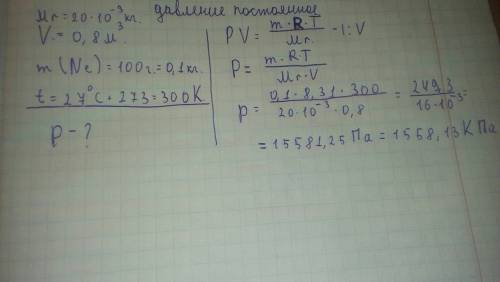 давление постоянное
Mr = 20·10⁻³ кг.
V = 0,8 м³
m (Ne) = 100 г. = 0,1 кг.
t = 27°C + 273 = 300 K
p - ?
PV = m·R·T / Mr. -1: V
P = m·R·T / Mr·V
p = 0,1·8,31·300 / 20·10⁻³·0,8 = 249,3 / 16·10⁻³ =
= 15581,25 Па = 1558,13 К Па